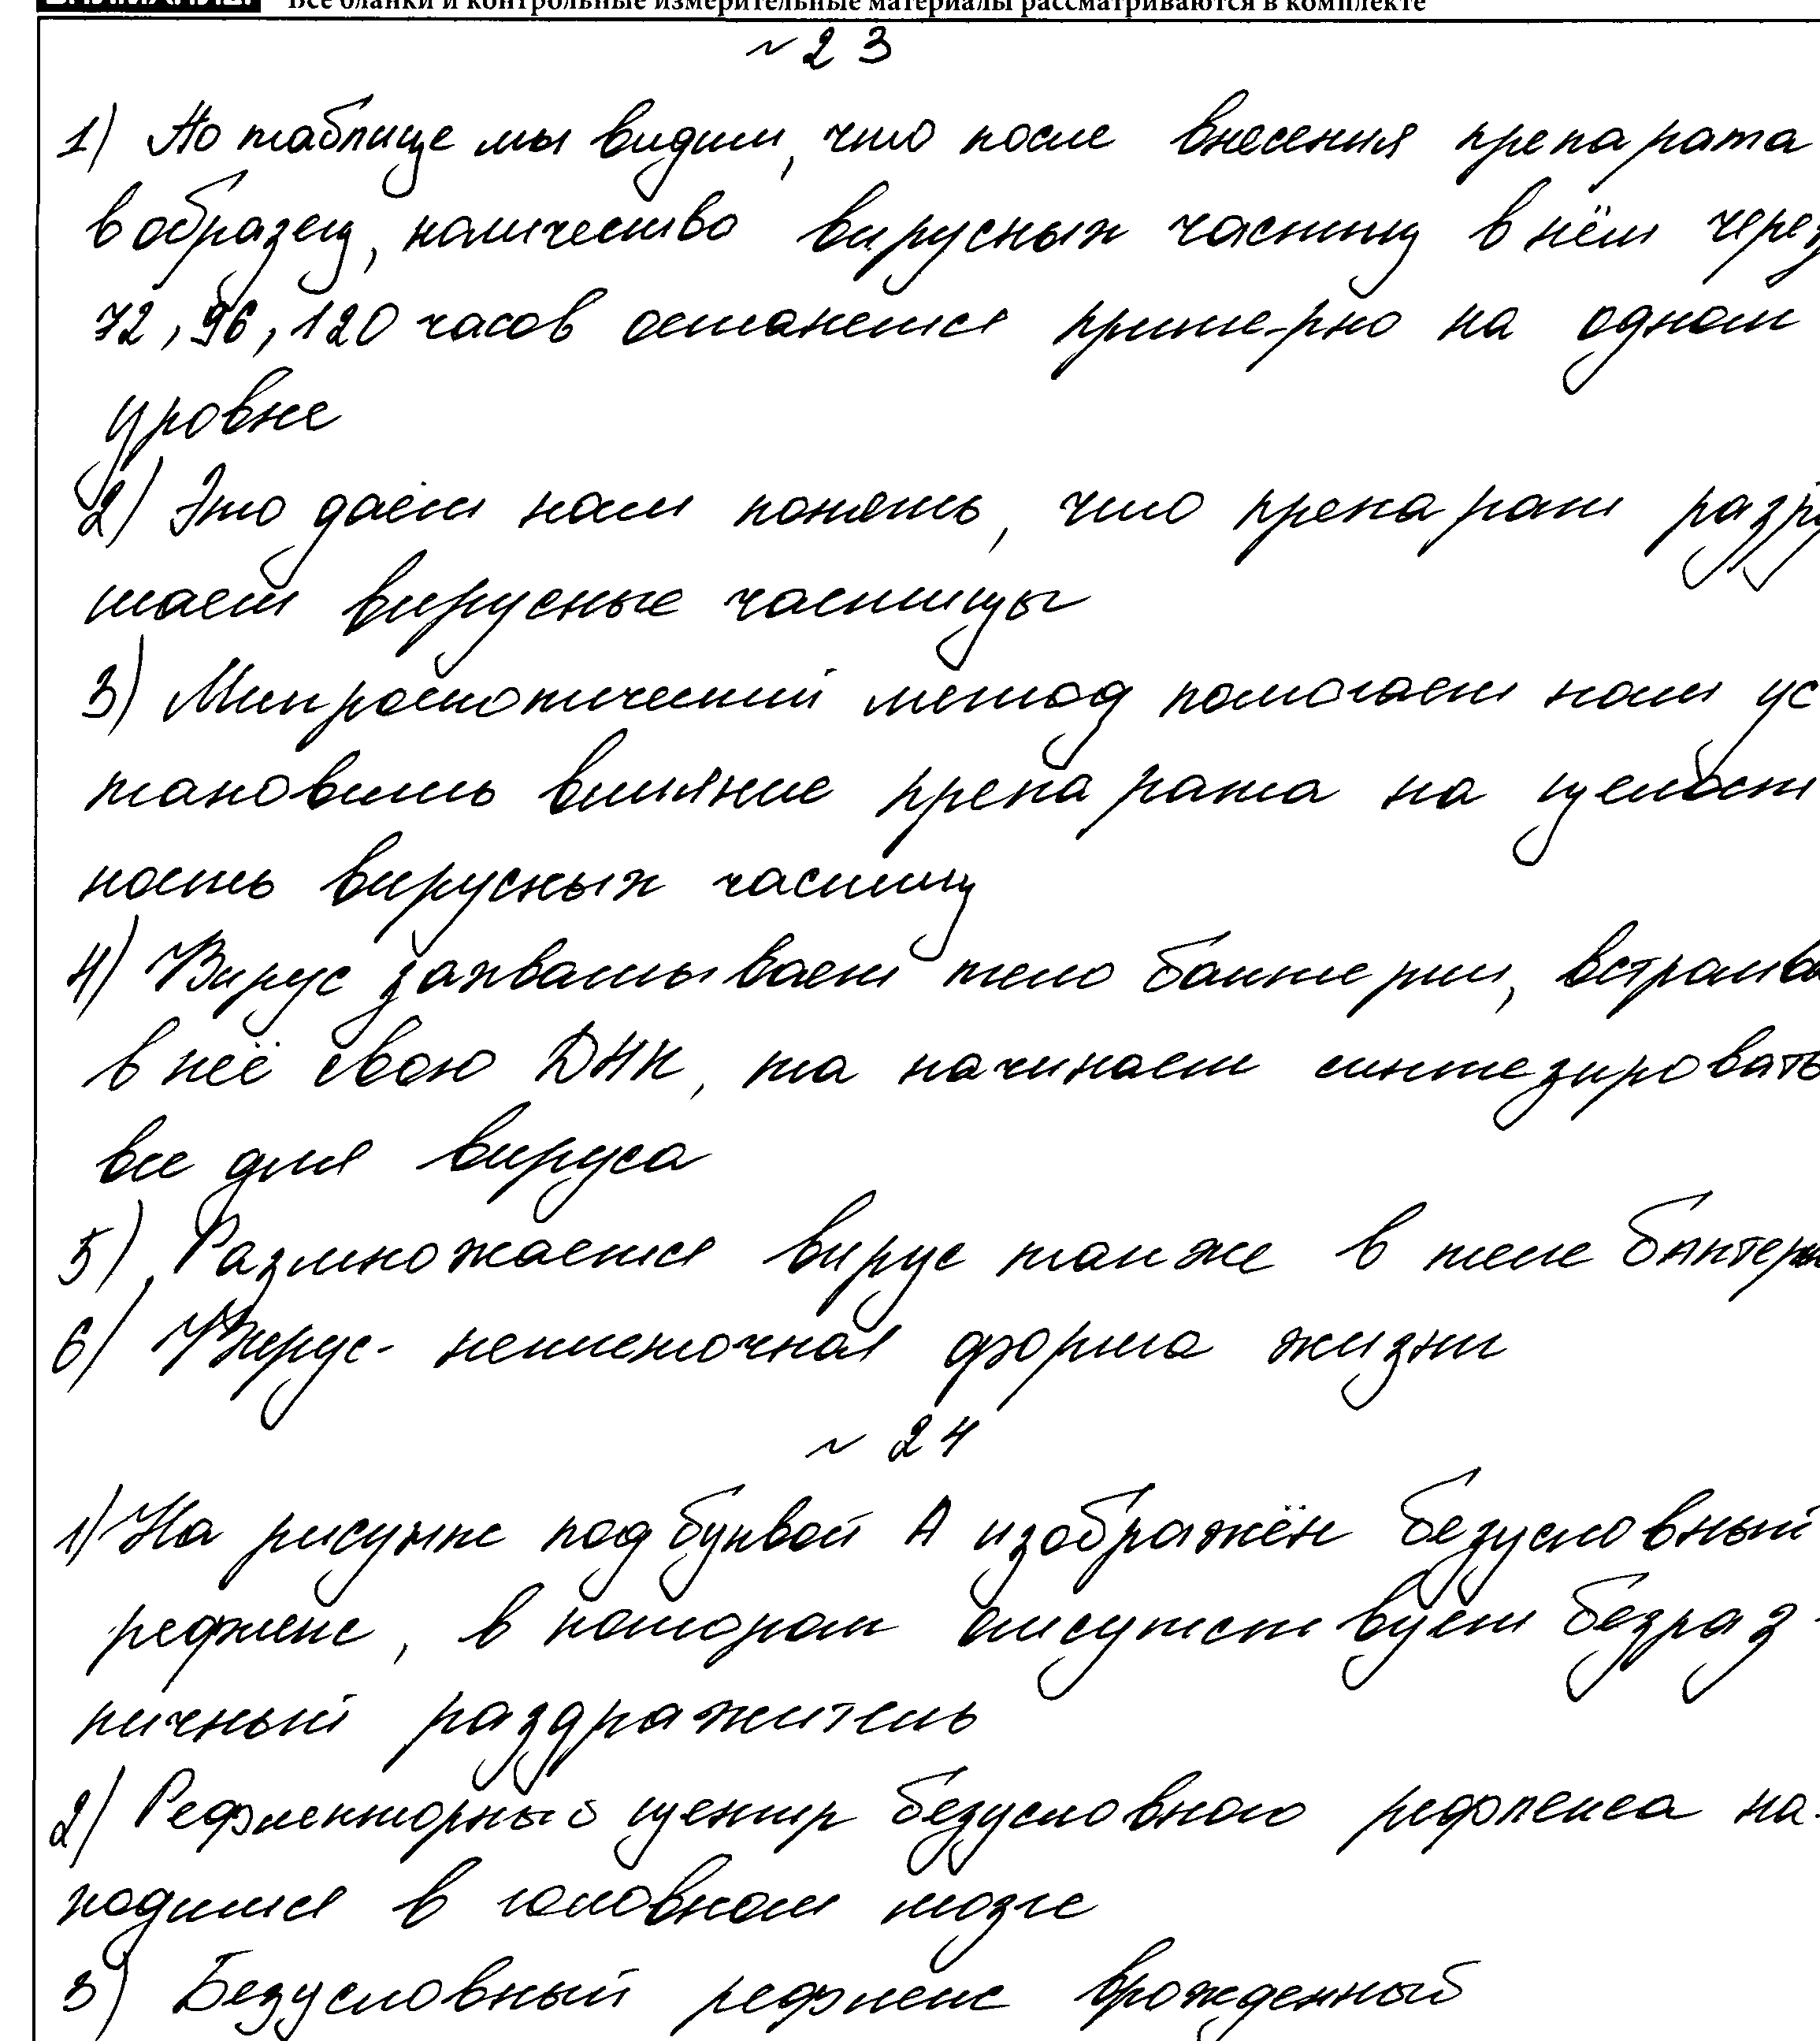 Все бланки и контрольные измерительные материалы рассматриваются в комплекте
~ 23
1) По таблице мы видим, что после внесения препарата
в образец, количество вирусных частиц в нём через
72, 96, 120 часов останется примерно на одном
уровне
2) Это даёт нам понять, что препарат разру
шает вирусные частицы
3) Микроскопический метод помогает нам ус
тановить влияние препарата на целост
ность вирусных частиц
4) Вирус захватывает тело бактерии, встраива
в неё свою ДНК, та начинает синтезировать
все для вируса
5) Размножается вирус также в теле бактери
6) Вирус - неклеточная форма жизни
~ 24
1) На рисунке под буквой А изображён безусловный
рефлекс, в котором отсутствует безраз-
личный раздражитель
2) Рефлекторный центр безусловного рефлекса на-
ходится в головном мозге
3) Безусловный рефлекс врожденный